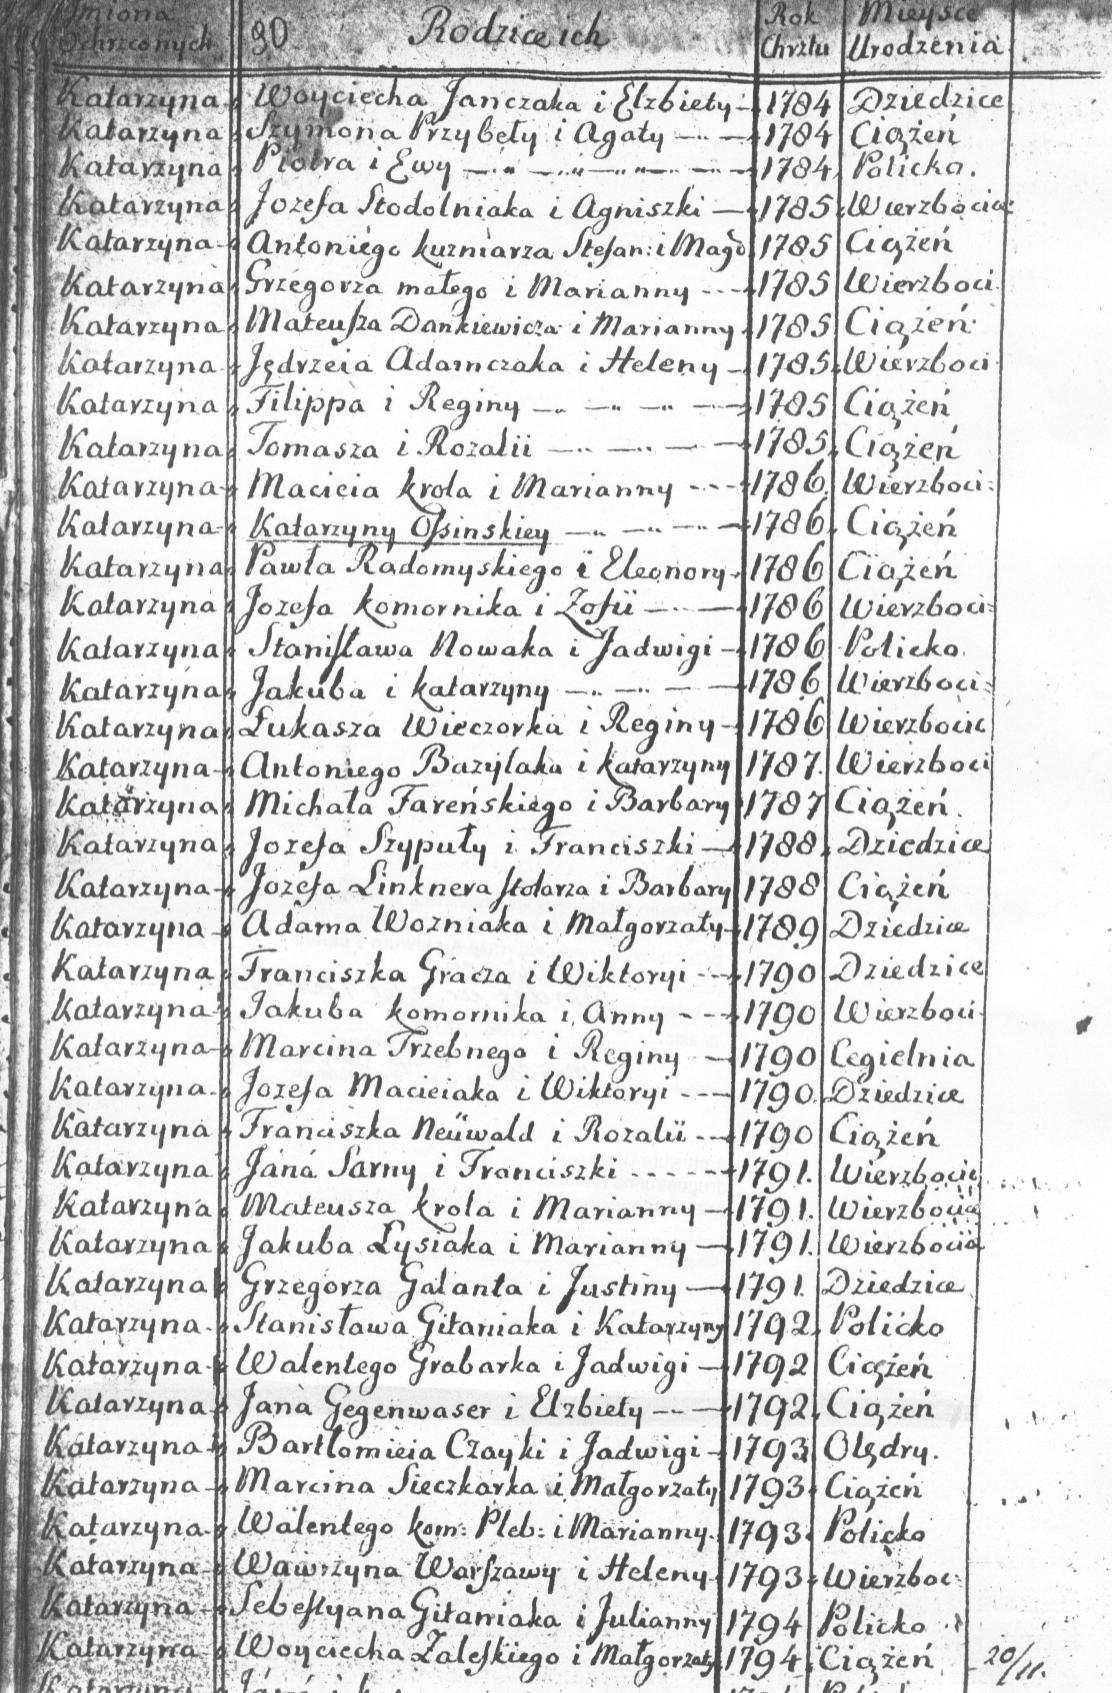 Imiona Ochrzconych 90 Rodzice ich Rok Chrztu Mieysce Urodzenia
Katarzyna Woyciecha Janczaka i Elzbiety 1784 Dziedzice
Katarzyna Szymona Przybeły i Agaty 1784 Ciążeń
Katarzyna Piotra i Ewy 1784 Policko.
Katarzyna Jozefa Stodolniaka i Agniszki 1785 Wierzbocice
Katarzyna Antoniégo kuzniarza Stefan: i Magd 1785 Ciążeń
Katarzyna Grzegorza małego i Marianny 1785 Wierzboci.
Katarzyna Mateusza Dankiewicza i Marianny 1785 Ciążeń
Katarzyna Jędrzeia Adamczaka i Heleny 1785 Wierzboci
Katarzyna Filippa i Reginy 1785 Ciążeń
Katarzyna Tomasza i Rozalii 1785 Ciążeń
Katarzyna Macieia krola i Marianny 1786 Wierzboci:
Katarzyna Katarzyny Ossinskiey 1786 Ciążeń
Katarzyna Pawła Radomyskiego i Eleonory 1786 Ciążeń
Katarzyna Jozefa komornika i Zofii 1786 Wierzboci:
Katarzyna Stanisława Nowaka i Jadwigi 1786 Policko.
Katarzyna Jakuba i katarzyny 1786 Wierzboci:
Katarzyna Łukasza Wieczorka i Reginy 1786 Wierzbocic
Katarzyna Antoniego Bazylaka i katarzyny 1787. Wierzboci
Katarzyna Michała Fareńskiego i Barbary 1787 Ciążeń.
Katarzyna Jozefa Szypuły i Franciszki 1788 Dziedzice
Katarzyna Jozefa Linknera stolarza i Barbary 1788 Ciążeń
Katarzyna Adama Wozniaka i Małgorzaty 1789 Dziedzice
Katarzyna Franciszka Gracza i Wiktoryi 1790 Dziedzice
Katarzyna Jakuba komornika i Anny 1790 Wierzboci
Katarzyna Marcina Trzebnego i Reginy 1790 Cegielnia
Katarzyna Jozefa Macieiaka i Wiktoryi 1790. Dziedzice
Katarzyna Franciszka Neüwald i Rozalii 1790 Ciążeń
Katarzyna Jana Sarny i Franciszki 1791. Wierzbocic
Katarzyna Mateusza krola i Marianny 1791. Wierzbocic
Katarzyna Jakuba Łysiaka i Marianny 1791. Wierzbocic
Katarzyna Grzegorza Galanta i Justiny 1791. Dziedzice
Katarzyna Stanisława Gitaniaka i Katarzyny 1792 Policko
Katarzyna Walentego Grabarka i Jadwigi 1792 Ciążeń
Katarzyna Jana Gegenwaser i Elzbiety 1792 Ciążeń
Katarzyna Bartłomieia Czayki i Jadwigi 1793 Olędry.
Katarzyna Marcina Sieczkarka i Małgorzaty 1793 Ciążeń
Katarzyna Walentego kom: Pleb: i Marianny. 1793 Policko
Katarzyna Wawrzyna Warszawy i Heleny 1793 Wierzboc:
Katarzyna Sebestyana Gitaniaka i Julianny 1794 Policko
Katarzyna Woyciecha Zaleskiego i Małgorzaty 1794 Ciążeń 20/11.
Katarzyna